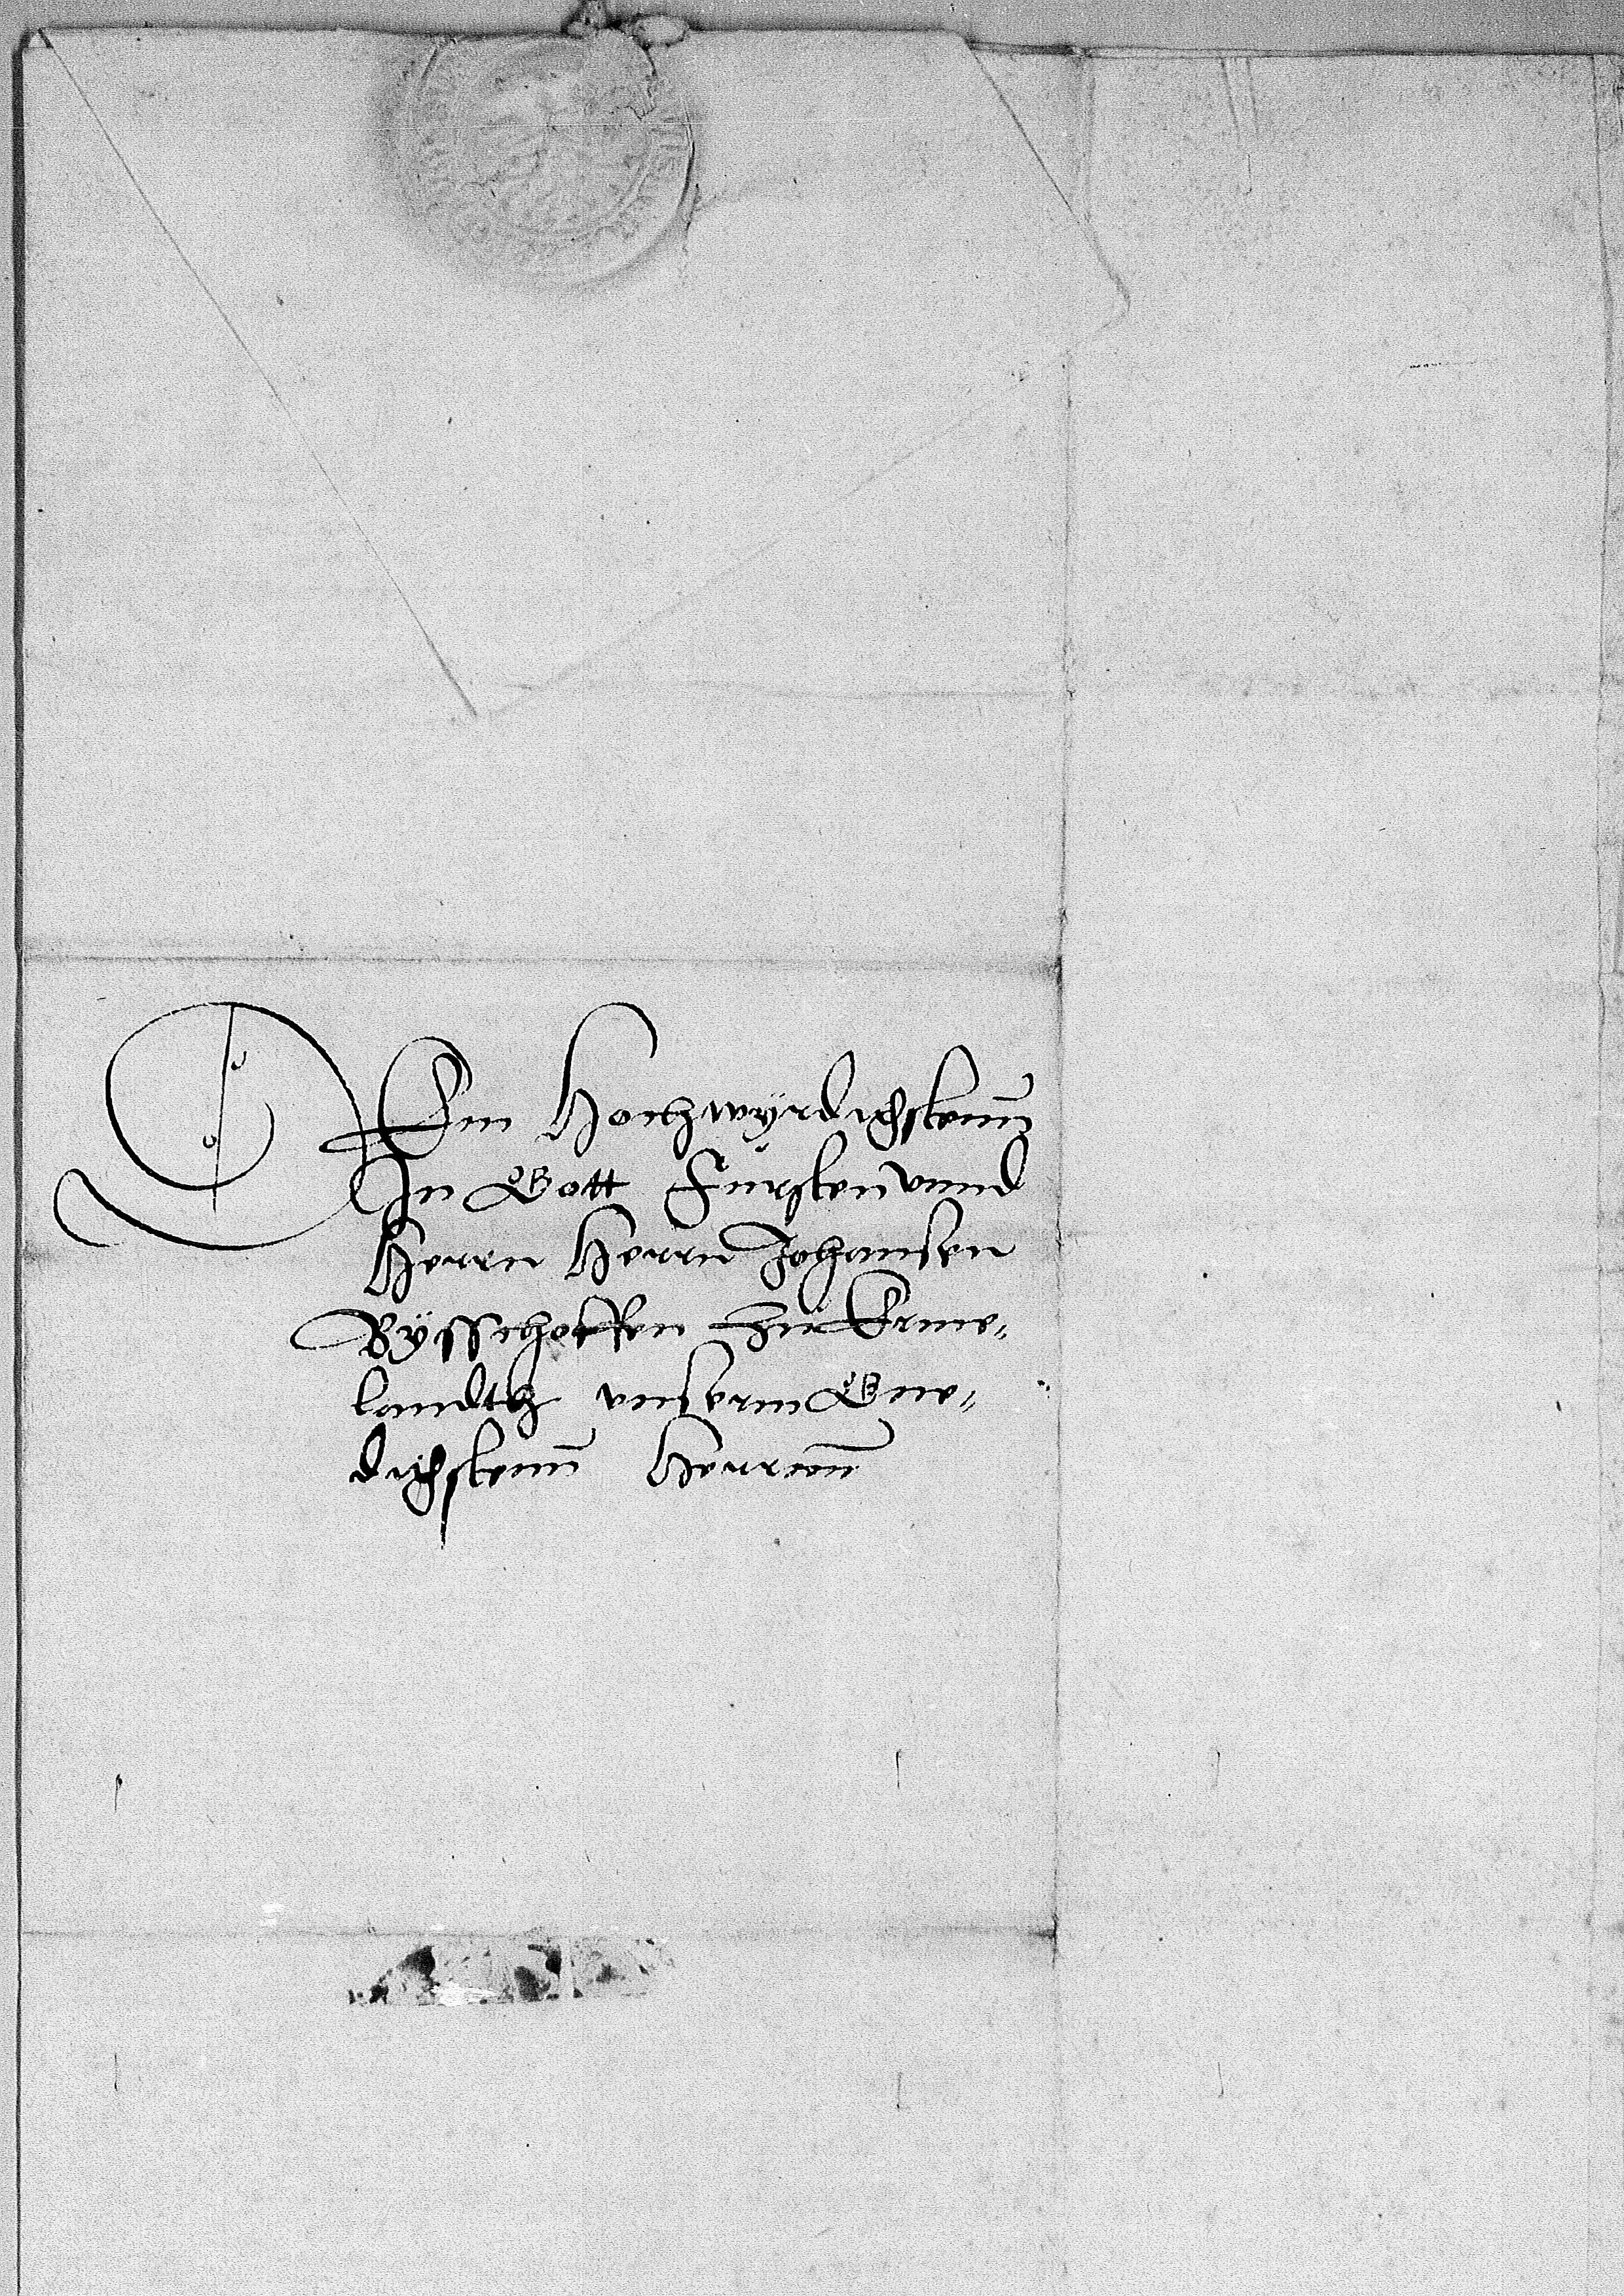 DEm Hochwÿrdigstenn
In Gott Fürsten vnnd
Herrn Herrn Johansen
Bÿsschoffen zu Erme⸗
landth vnserm Gne⸗
digstenn Herrenn